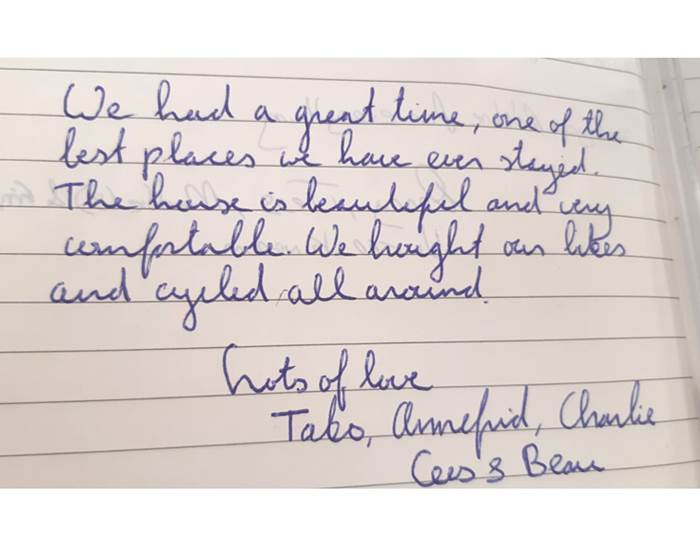 We had a great time, one of the
best places we have ever stayed.
The house is beautiful and very
comfortable. We bought our bikes
and cycled all around.
Lots of love
Tako, Annefrid, Charlie
Cees & Beau